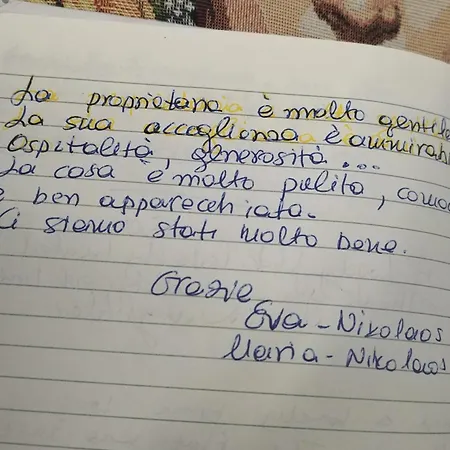 La proprietaria è molto gentile
La sua accoglienza è ammirab
Ospitalità, generosità...
La casa è molto pulita, como
e ben apparecchiata.
Ci siamo stati molto bene.
Grazie
Eva - Nikolaos
Maria - Nikolaos